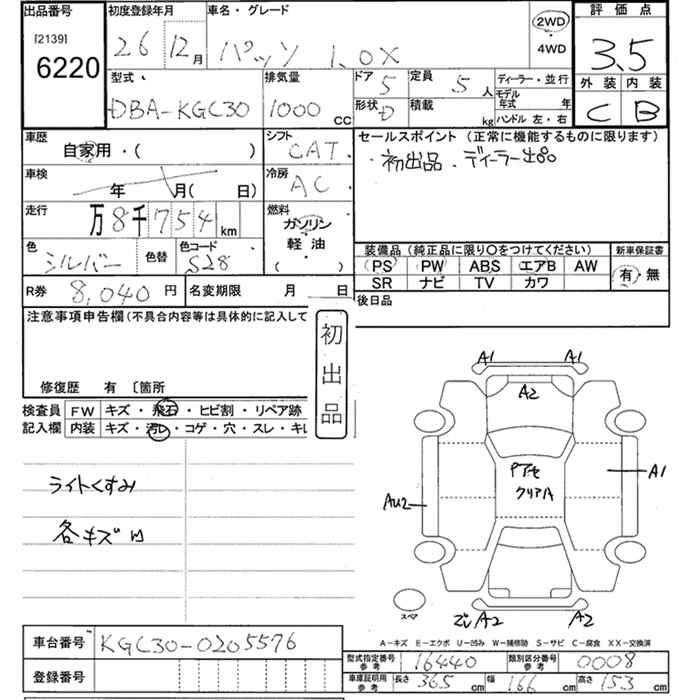 出品番号 初度登録年月 車名・グレード 評価点
[2139]
6220
26 12月 パッソ 1.0X 2WD 4WD 3.5
型式 排気量 ドア 5 定員 5人 ディーラー・並行 外装 内装
DBA-KGC30 1000cc 形状 D 積載 kg モデル年式 年 ハンドル 左・右 C B
車歴 シフト セールスポイント (正常に機能するものに限ります)
自家用・( ) CAT 初出品 ディーラー
車検 年 月( 日) 冷房 AC
走行 万8千754km 燃料 ガソリン 軽油 ( )
色 シルバー 色替 色コード S28
装備品 (純正品に限り〇をつけてください) 新車保証書
PS PW ABS エアB AW 有・無
SR ナビ TV カワ
R券 8,040円 名変期限 月 日 後日品
注意事項申告欄(不具合内容等は具体的に記入して
初出品
修復歴 有 〔箇所
検査員記入欄 FW キズ・飛石・ヒビ割・リペア跡
内装 キズ・汚レ・コゲ・穴・スレ・キレ
ライトくすみ
各キズU
A1 A1
A2
クリアA
A1
AU2
スペア
A2 A2
A-キズ E-エクボ U-凹み W-補修跡 S-サビ C-腐食 XX-交換済
車台番号 KGC30-0205576
型式指定番号 参考 16440 類別区分番号 参考 0008
登録番号
車庫証明用 参考 長さ 365cm 幅 166cm 高さ 153cm